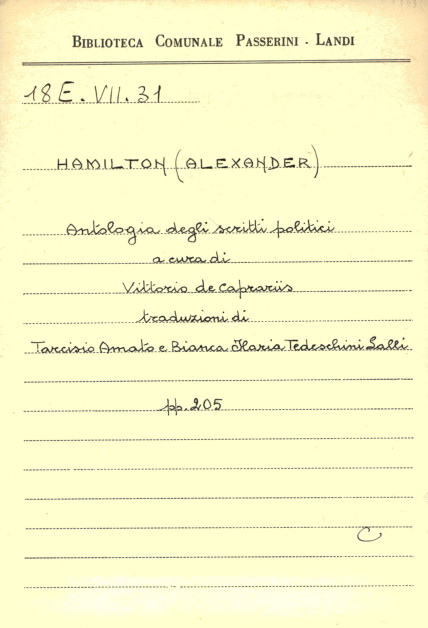 BIBLIOTECA COMUNALE PASSERINI - LANDI
18E. VII. 31
HAMILTON (ALEXANDER)
Antologia degli scritti politici
a cura di
Vittorio de Caprariis
traduzioni di
Tarcisio Amato e Bianca Maria Tedeschini Lalli
pp. 205
C